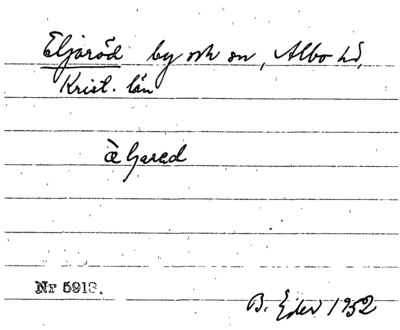 Eljaröd by och sn, Albo hd,
Krist. län
Nr 5918.
B. Ejder 1952